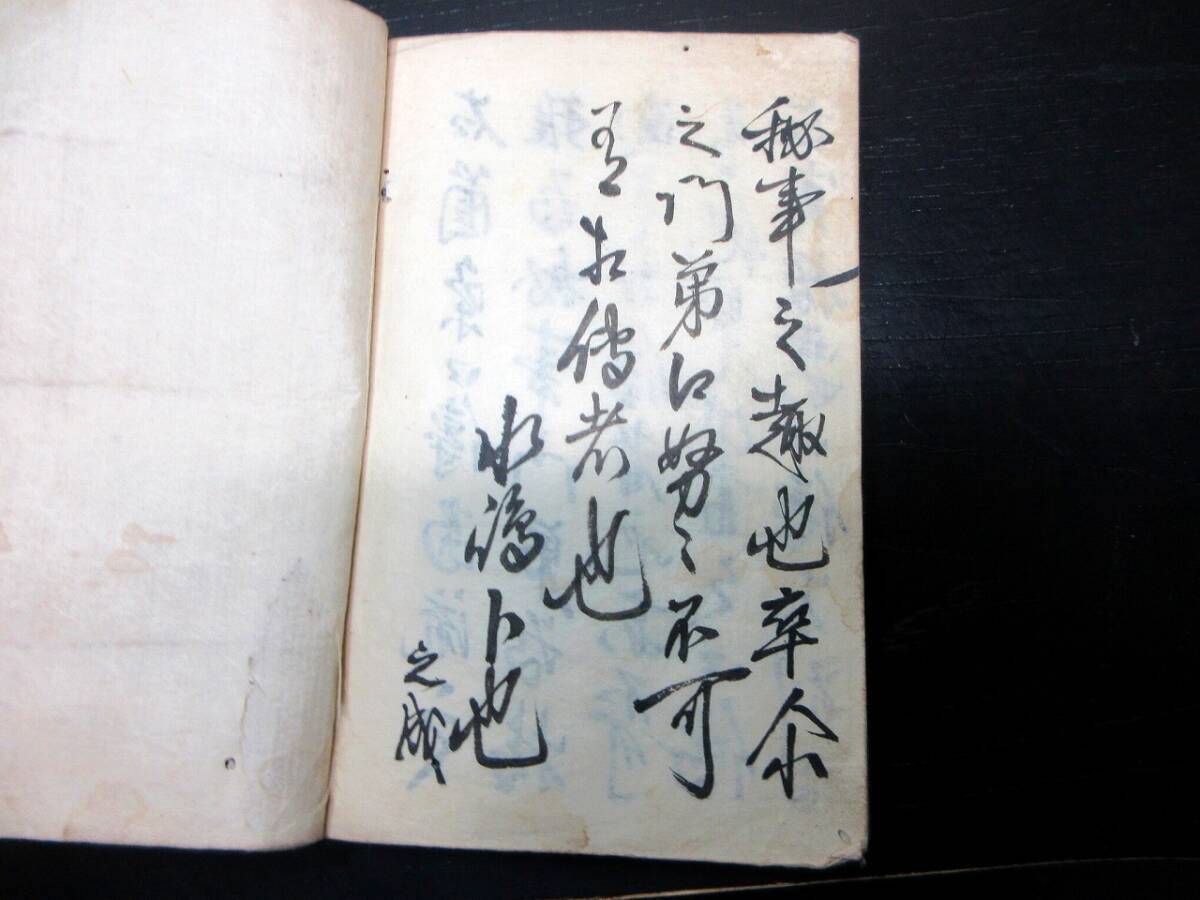 秘事之趣也卒尓
之門弟江努〻不可
有相傳者也
水嶋卜也
之成